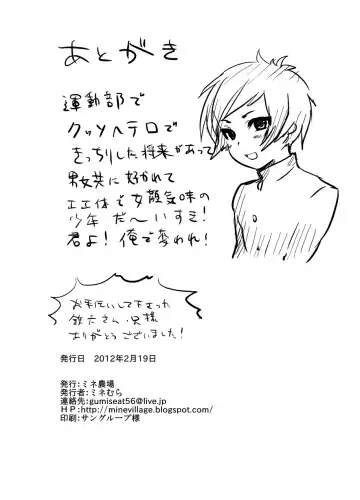 あとがき
運動部で
クッソヘテロで
きっちりした将来があって
男女共に好かれて
エエ体で女散気味の
少年だ〜いすき!
君よ!俺で変われ!
お手伝いしてもらった
鉄六さん・兄様
ありがとうございました!
発行日 2012年2月19日
発行:ミネ農場
発行者:ミネむら
連絡先:gumiseat56@live.jp
HP:http://minevillage.blogspot.com/
印刷:サングループ様